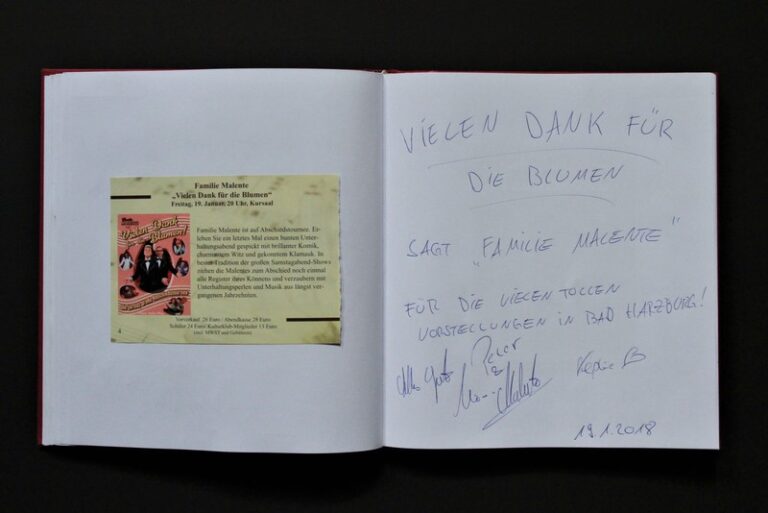 Familie Malente
„Vielen Dank für die Blumen“
Freitag, 19. Januar, 20 Uhr, Kursaal
Familie Malente ist auf Abschiedstournee. Er-
leben Sie ein letztes Mal einen bunten Unter-
haltungsabend gespickt mit brillanter Komik,
charmantem Witz und gekonntem Klamauk. In
bester Tradition der großen Samstagabend-Shows
ziehen die Malentes zum Abschied noch einmal
alle Register ihres Könnens und verzaubern mit
Unterhaltungsperlen und Musik aus längst ver-
gangenen Jahrzehnten.
Vielen Dank
für die Blumen!
Vorverkauf: 26 Euro / Abendkasse 28 Euro
Schüler 24 Euro/ Kulturklub-Mitglieder 13 Euro
(incl. MWST und Gebühren)
4
VIELEN DANK FÜR
DIE BLUMEN
SAGT „FAMILIE MALENTE“
FÜR DIE VIELEN TOLLEN
VORSTELLUNGEN IN BAD HARZBURG!
Alles Gute Peter
&
Malente
19.1.2018